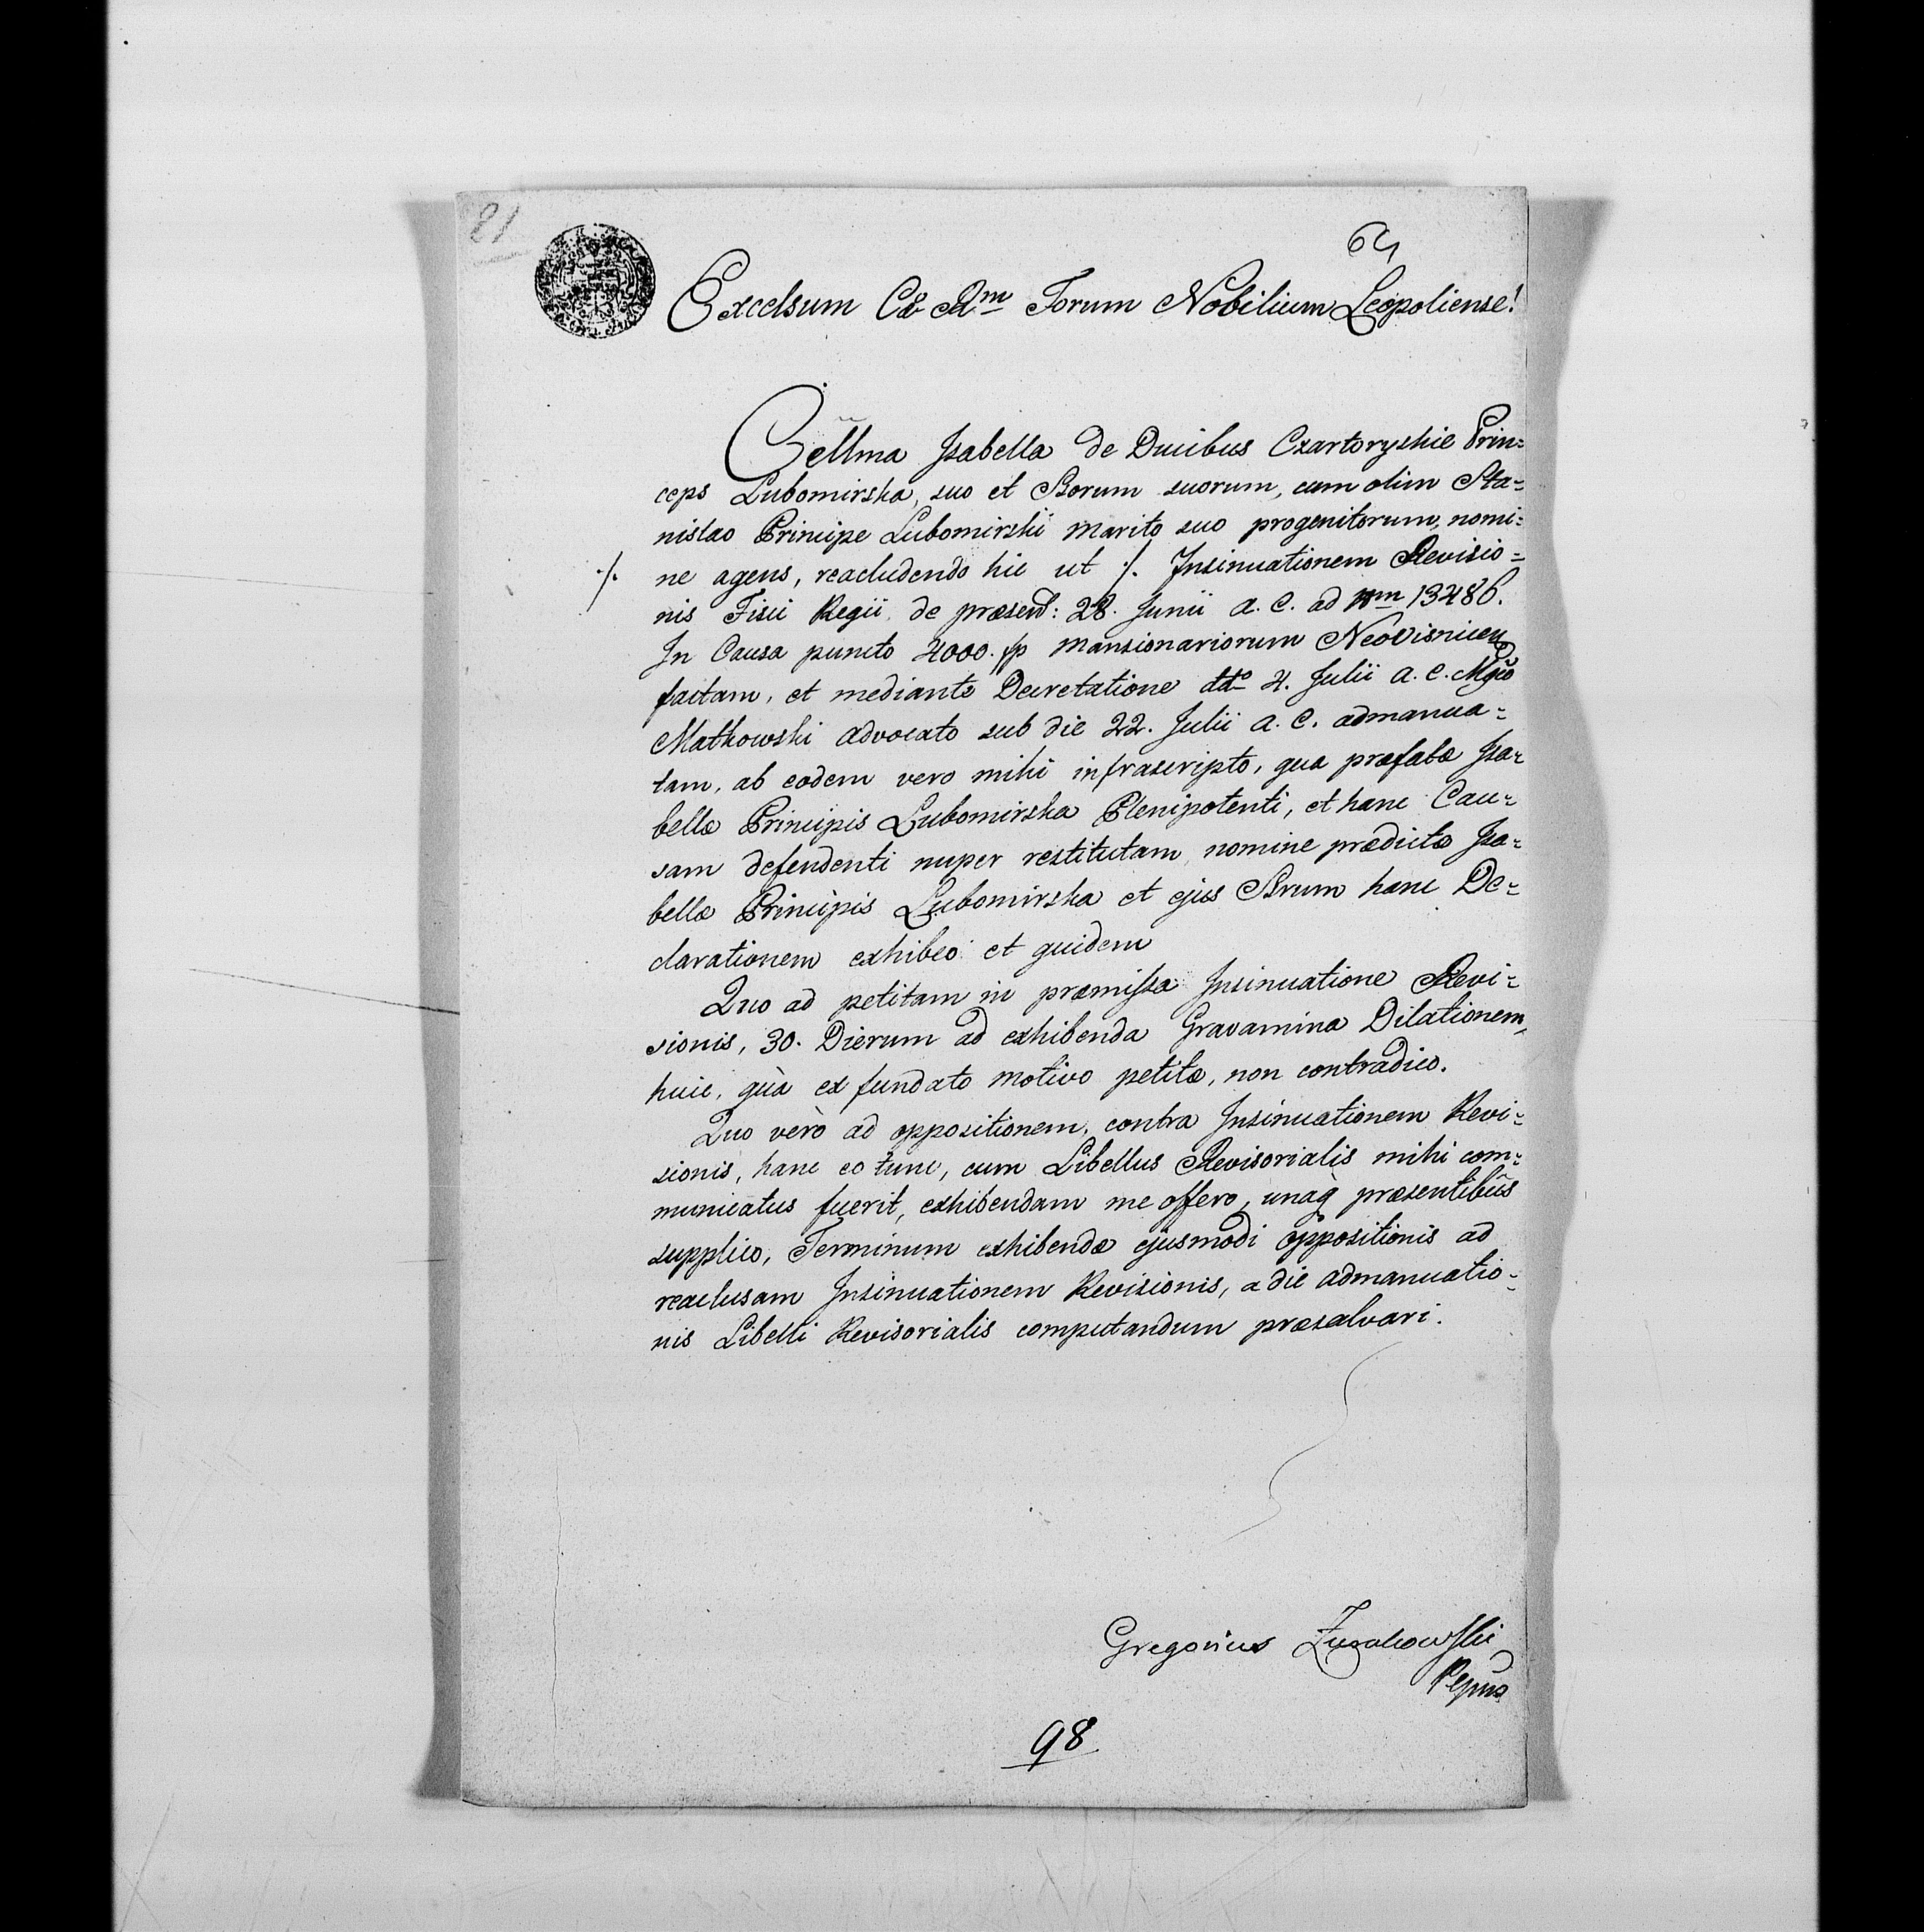 81
64
Excelsum Cæ Rm Forum Nobilium Leopoliense!
Cellma Isabella de Ducibus Czartoryskie Prin=
ceps Lubomirska, suo et Prorum suorum, cum olim Sta=
nislao Principe Lubomirskii Marito suo progenitorum, nomi=
ne agens, reacludendo hic ut ./. Insinuationem Revisio=
./.
nis Fisci Regii de præsent: 28. Junii a. c. ad Num 13486.
In Causa puncto 4000. fp Mansionariorum NeoVisnicen
factam, et mediante Decretatione ddto 4. Julii a. c. Mgco
Matkowski advocato sub die 22. Julii a. c. admanua=
tam, ab eodem vero mihi infrascripto, qua præfatæ Isa=
bellæ Principis Lubomirska Plenipotenti, et hanc Cau=
sam defendenti nuper restitutam, nomine prædictæ Isa=
bellæ Principis Lubomirska et ejus Prum hanc De=
clarationem exhibeo et quidem
Quo ad petitam in præmissa Insinuatione Revi=
sionis, 30. Dierum ad exhibenda Gravamina Dilationem,
huic, quà ex fundato motivo petitæ, non contradico.
Quo verò ad oppositionem, contra Insinuationem Revi=
sionis, hanc eo tunc, cum Libellus Revisorialis mihi com=
municatus fuerit, exhibendam me offero, unaq præsentibus
supplico, Terminum exhibendæ ejusmodi oppositionis ad
reaclusam Insinuationem Revisionis, a die admanuatio=
nis Libelli Revisorialis computandum præsalvari.
Gregorius
98